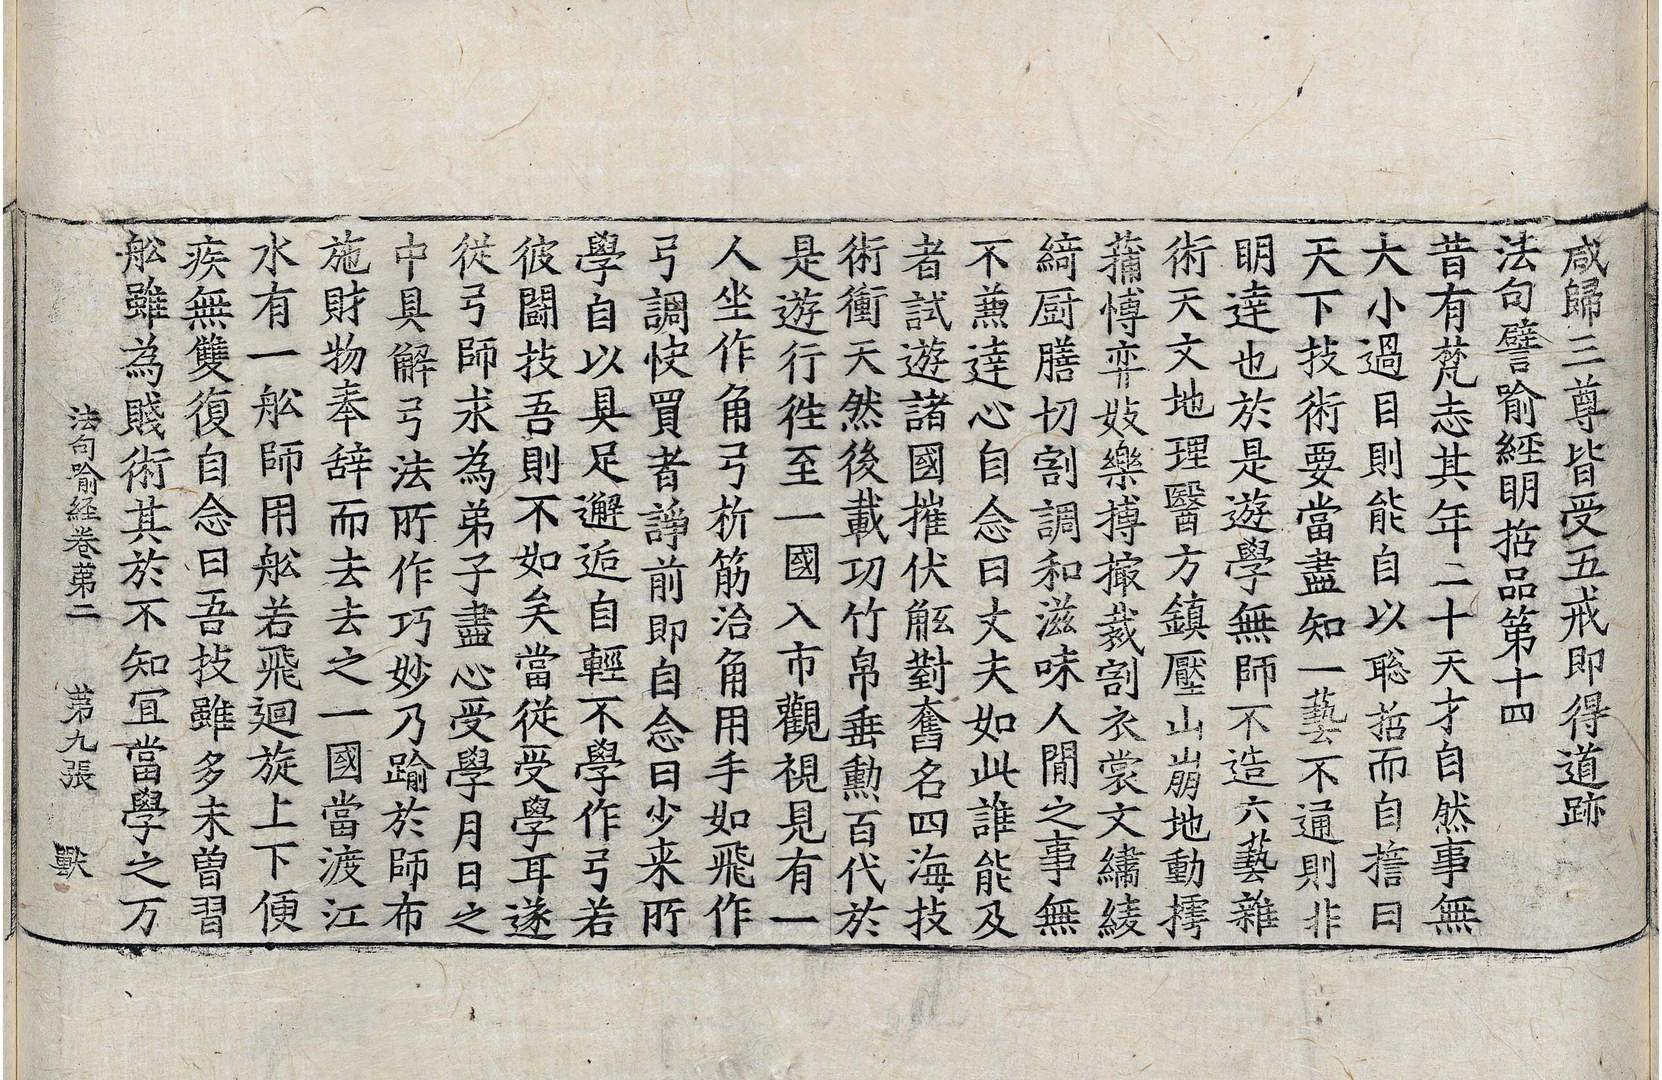 咸歸三尊皆受五戒即得道跡
法句譬喻經明喆品第十四
昔有梵志其年二十天才自然事無
大小過目則能自以聡喆而自擔曰
天下技術要當盡知一藝不通則非
明達也於是遊學無師不造六藝雜
術天文地理醫方鎮壓山崩地動摴
蒱愽弈妓樂搏撮裁割衣裳文繡綾
綺厨膳切割調和滋味人閒之事無
不兼達心自念曰丈夫如此誰能及
者試遊諸國摧伏觝對奮名四海技
術衝天然後載功竹帛垂勳百代於
是遊行徃至一國入市觀視見有一
人坐作角弓析筋治角用手如飛作
弓調快買者諍前即自念曰少来所
學自以具足邂逅自輕不學作弓若
彼鬭技吾則不如矣當從受學耳遂
從弓師求為弟子盡心受學月日之
中具解弓法所作巧妙乃踰於師布
施財物奉辞而去去之一國當渡江
水有一舩師用舩若飛迴旋上下便
疾無雙復自念曰吾技雖多未曽習
舩雖為賤術其於不知冝當學之万
法句喻経卷苐二 苐九張 獸